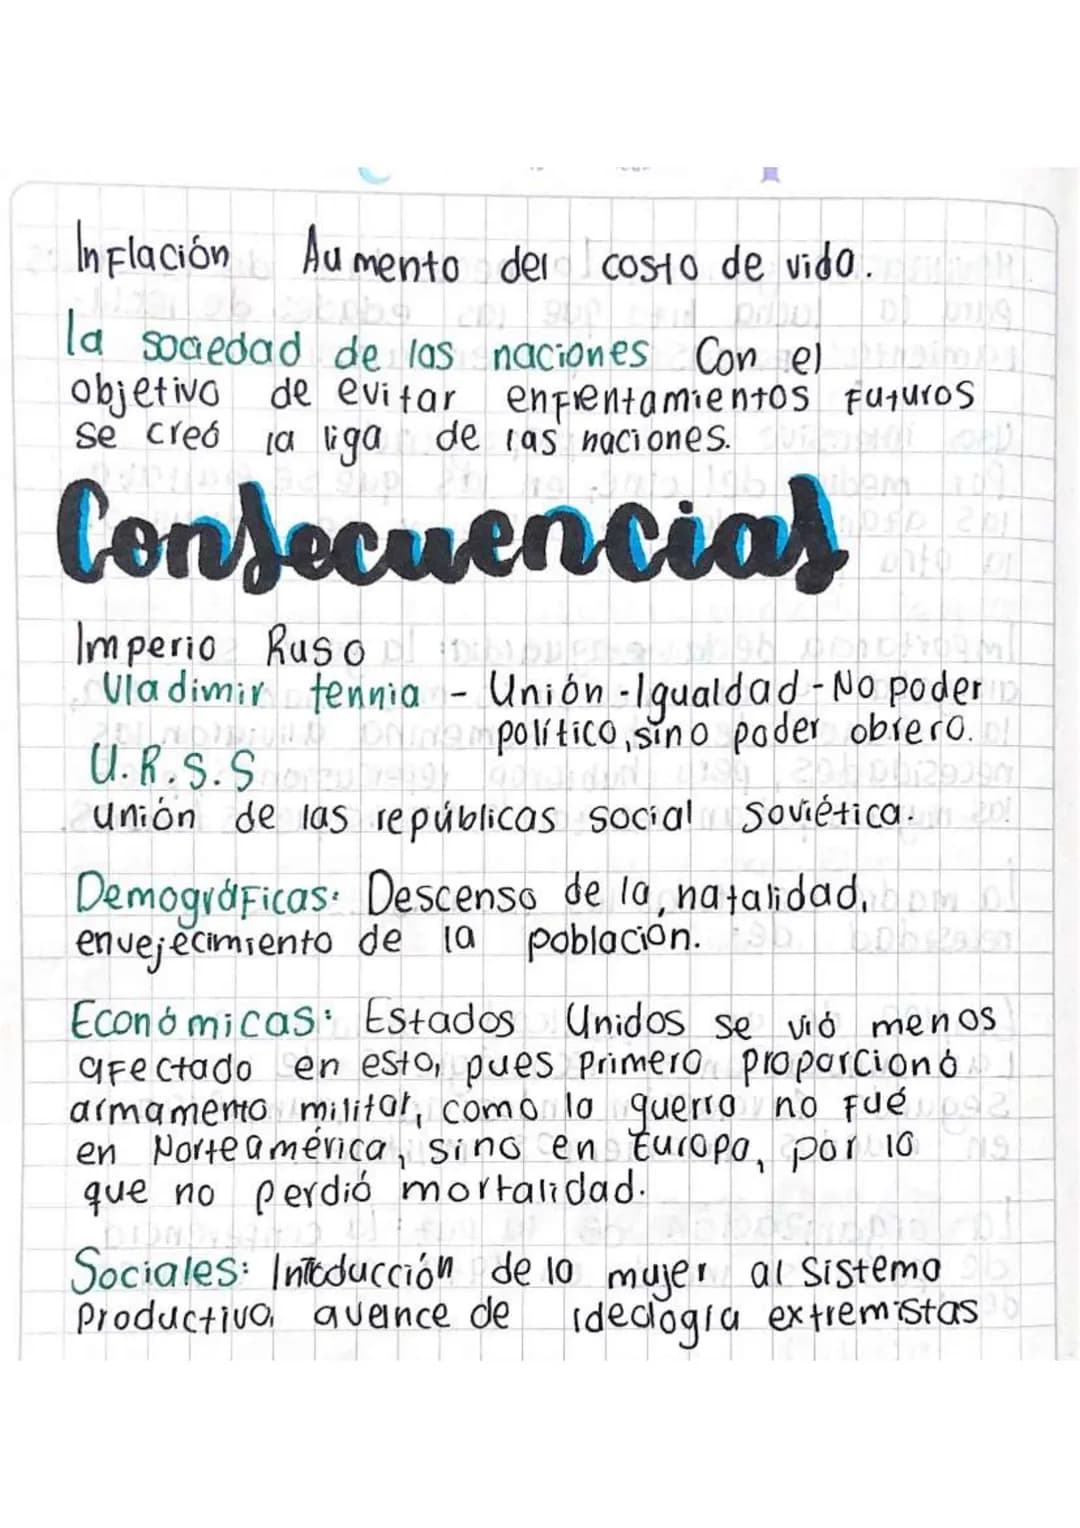 Inflación Aumento del costo de vida.
la sociedad de las naciones Con el
objetivo de evitar enfrentamientos futuros
se creó la liga de las naciones.
Consecuencias
Imperio Ruso
Vladimir tennia - Unión - Igualdad - No poder
político, sino poder obrero.
U.R.S.S
unión de las repúblicas social Soviética.
Demográficas: Descenso de la natalidad,
envejecimiento de la población.
Económicas: Estados Unidos se vió menos
afectado en esto, pues primero proporcionó
armamento militar, como la guerra no fué
en Norteamérica, sino en Europa, por lo
que no perdió mortalidad.
Sociales: Introducción de la mujer al sistema
Productivo, avance de ideología extremistas